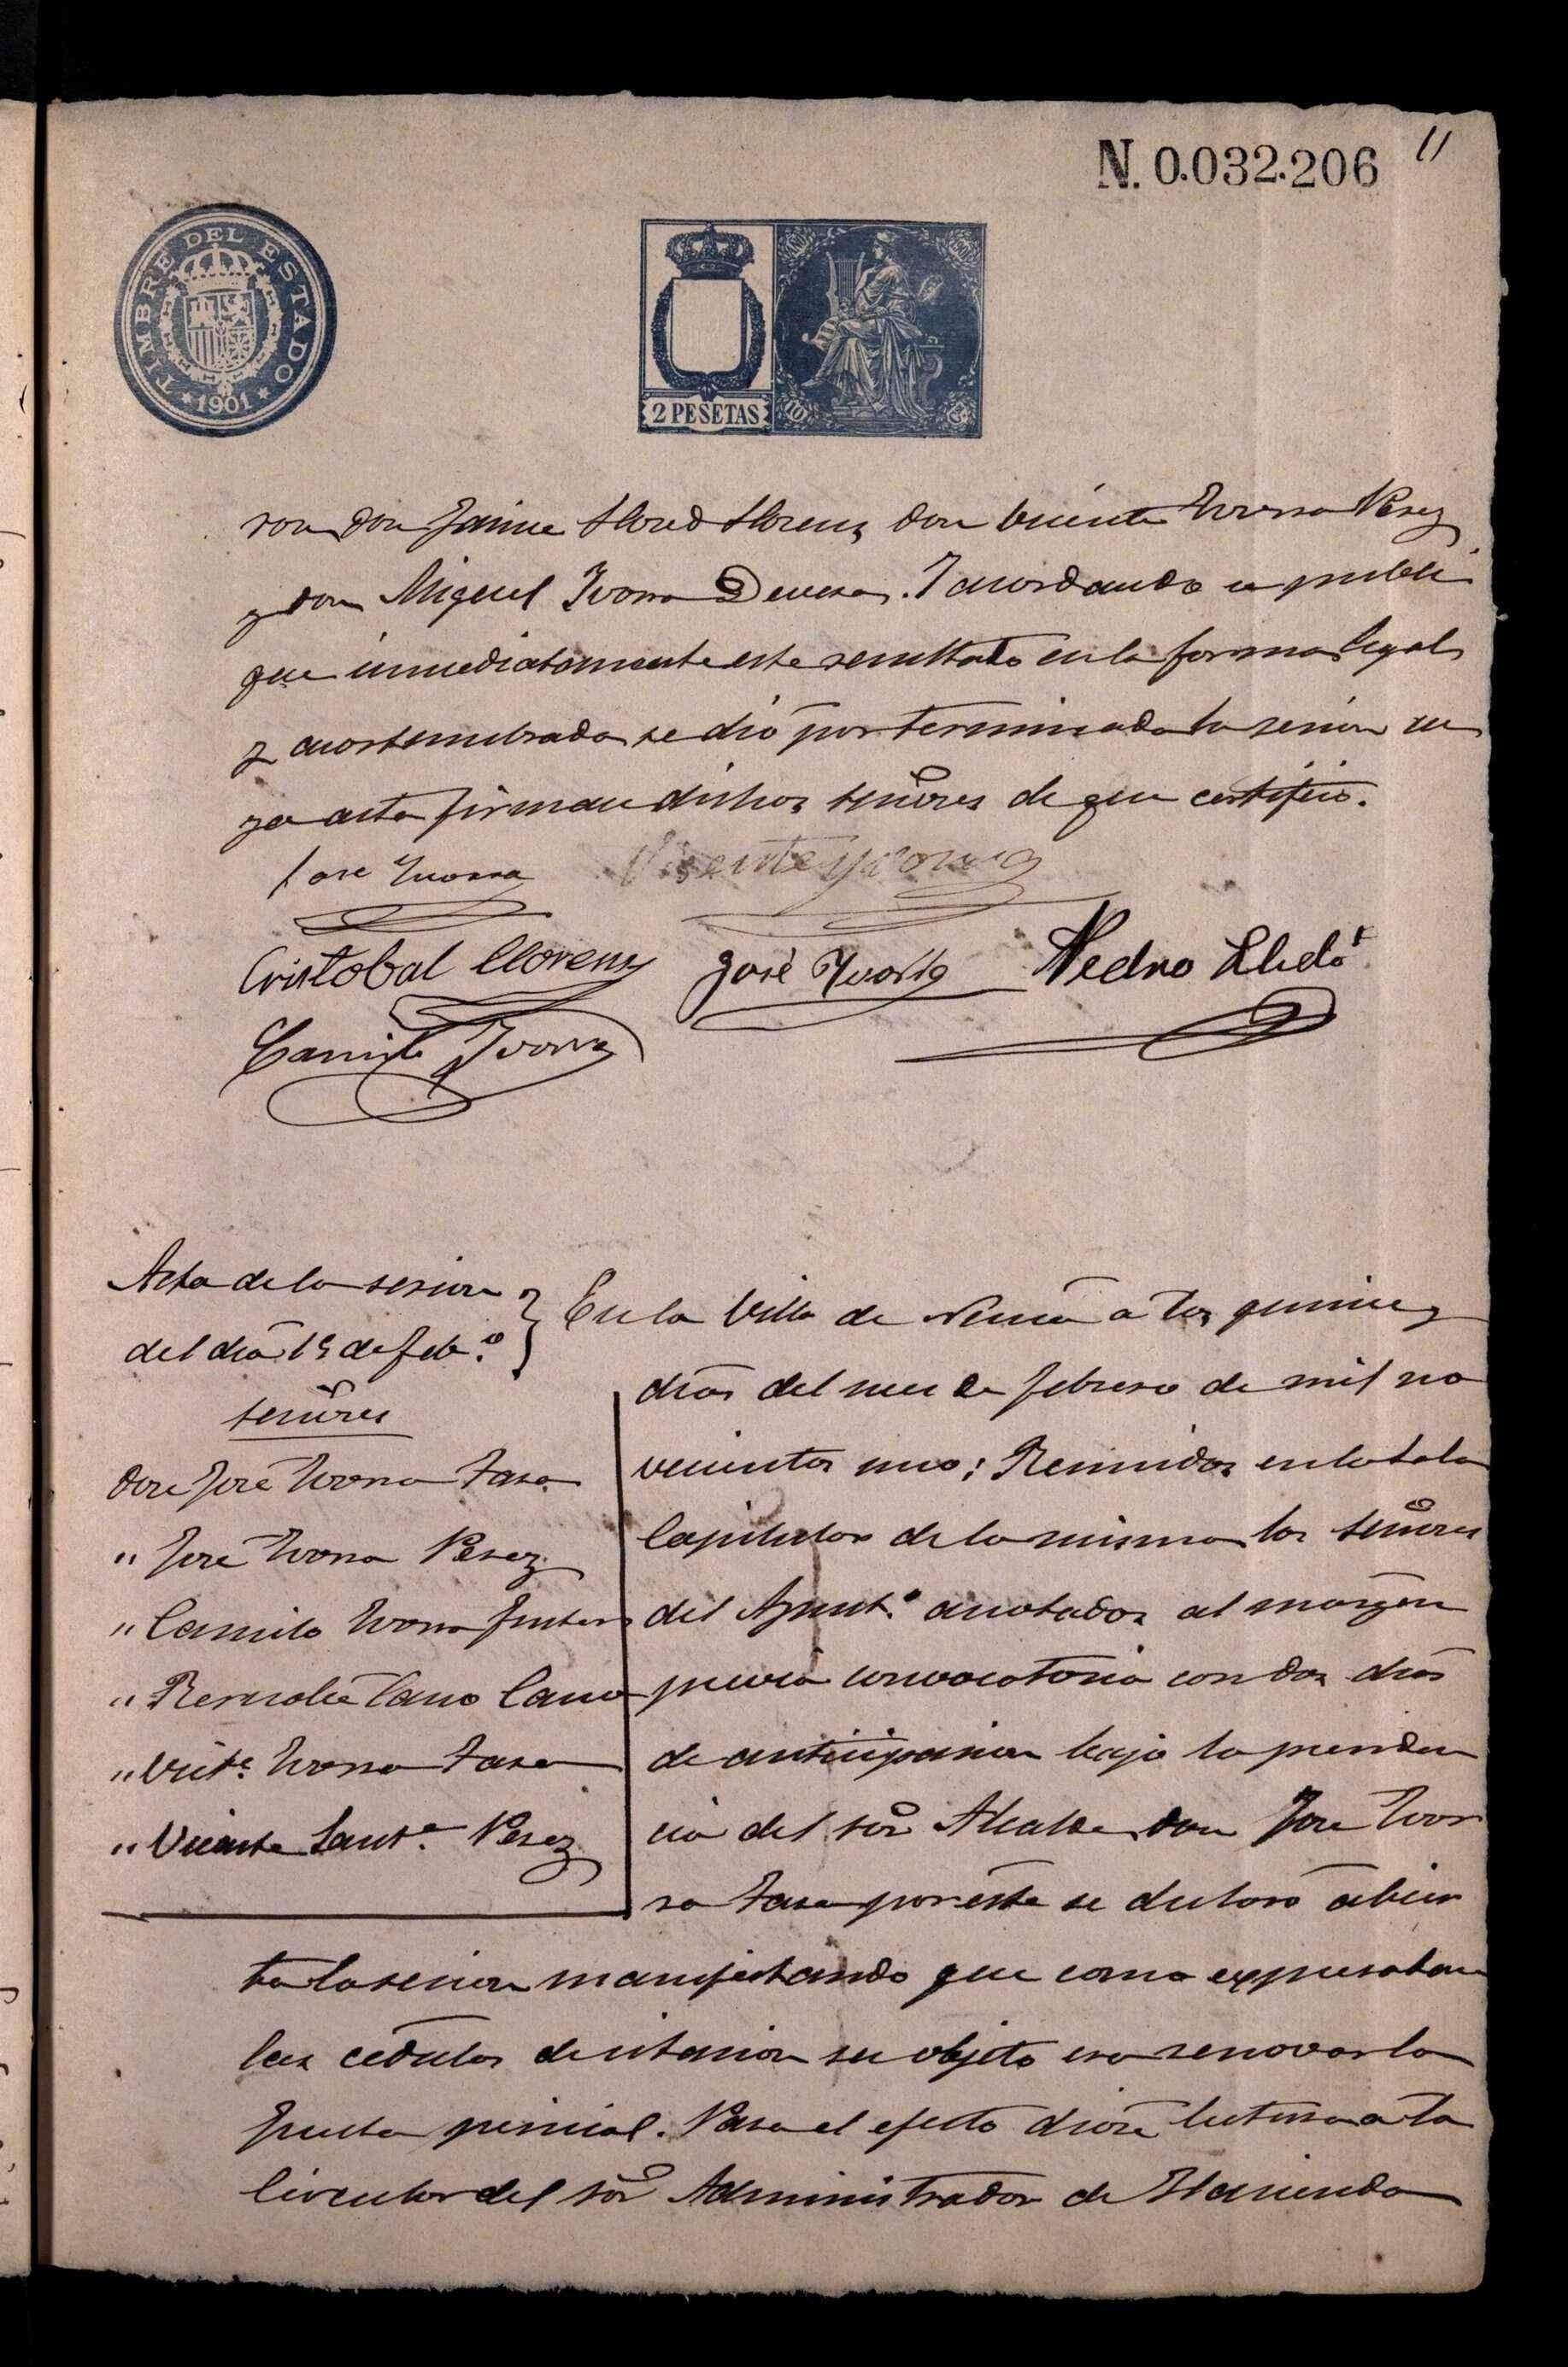 N. 0.032.206
11
TIMBRE DEL ESTADO
1901
2 PESETAS
ron don Jaime Llored Llorens, don Vicente Ivorra Perez
y don Miguel Ivorra Devesa. Y acordando se publi
que inmediatamente este resultado en la forma legal
y acostumbrada se dió por terminada la sesion cu
ya acta firman dichos señores de que certifico.
Jose Ivorra
Vicente Yvorra
Cristobal Llorens
José Ivorra
Pedro Lledó
Camilo Ivorra
Acta de la sesion
del dia 15 de febº
señores
don José Ivorra
" José Ivorra Perez
" Camilo Ivorra
" Bernabé Cano Cano
" Victe Ivorra
" Vicente Perez
En la Villa de á los quince
dias del mes de febrero de mil no
vecientos uno; Reunidos en la sala
Capitular de la misma los señores
del Ayuntº anotados al margen
previa convocatoria con dos dias
de anticipacion bajo la presiden
cia del sor Alcalde don José Ivor
ra por este se declaró abier
ta la sesion manifestando que como expresaban
las cedulas de citacion su objeto era renovar la
Junta pericial. Para el efecto dióse lectura á la
Circular del sor Administrador de Hacienda